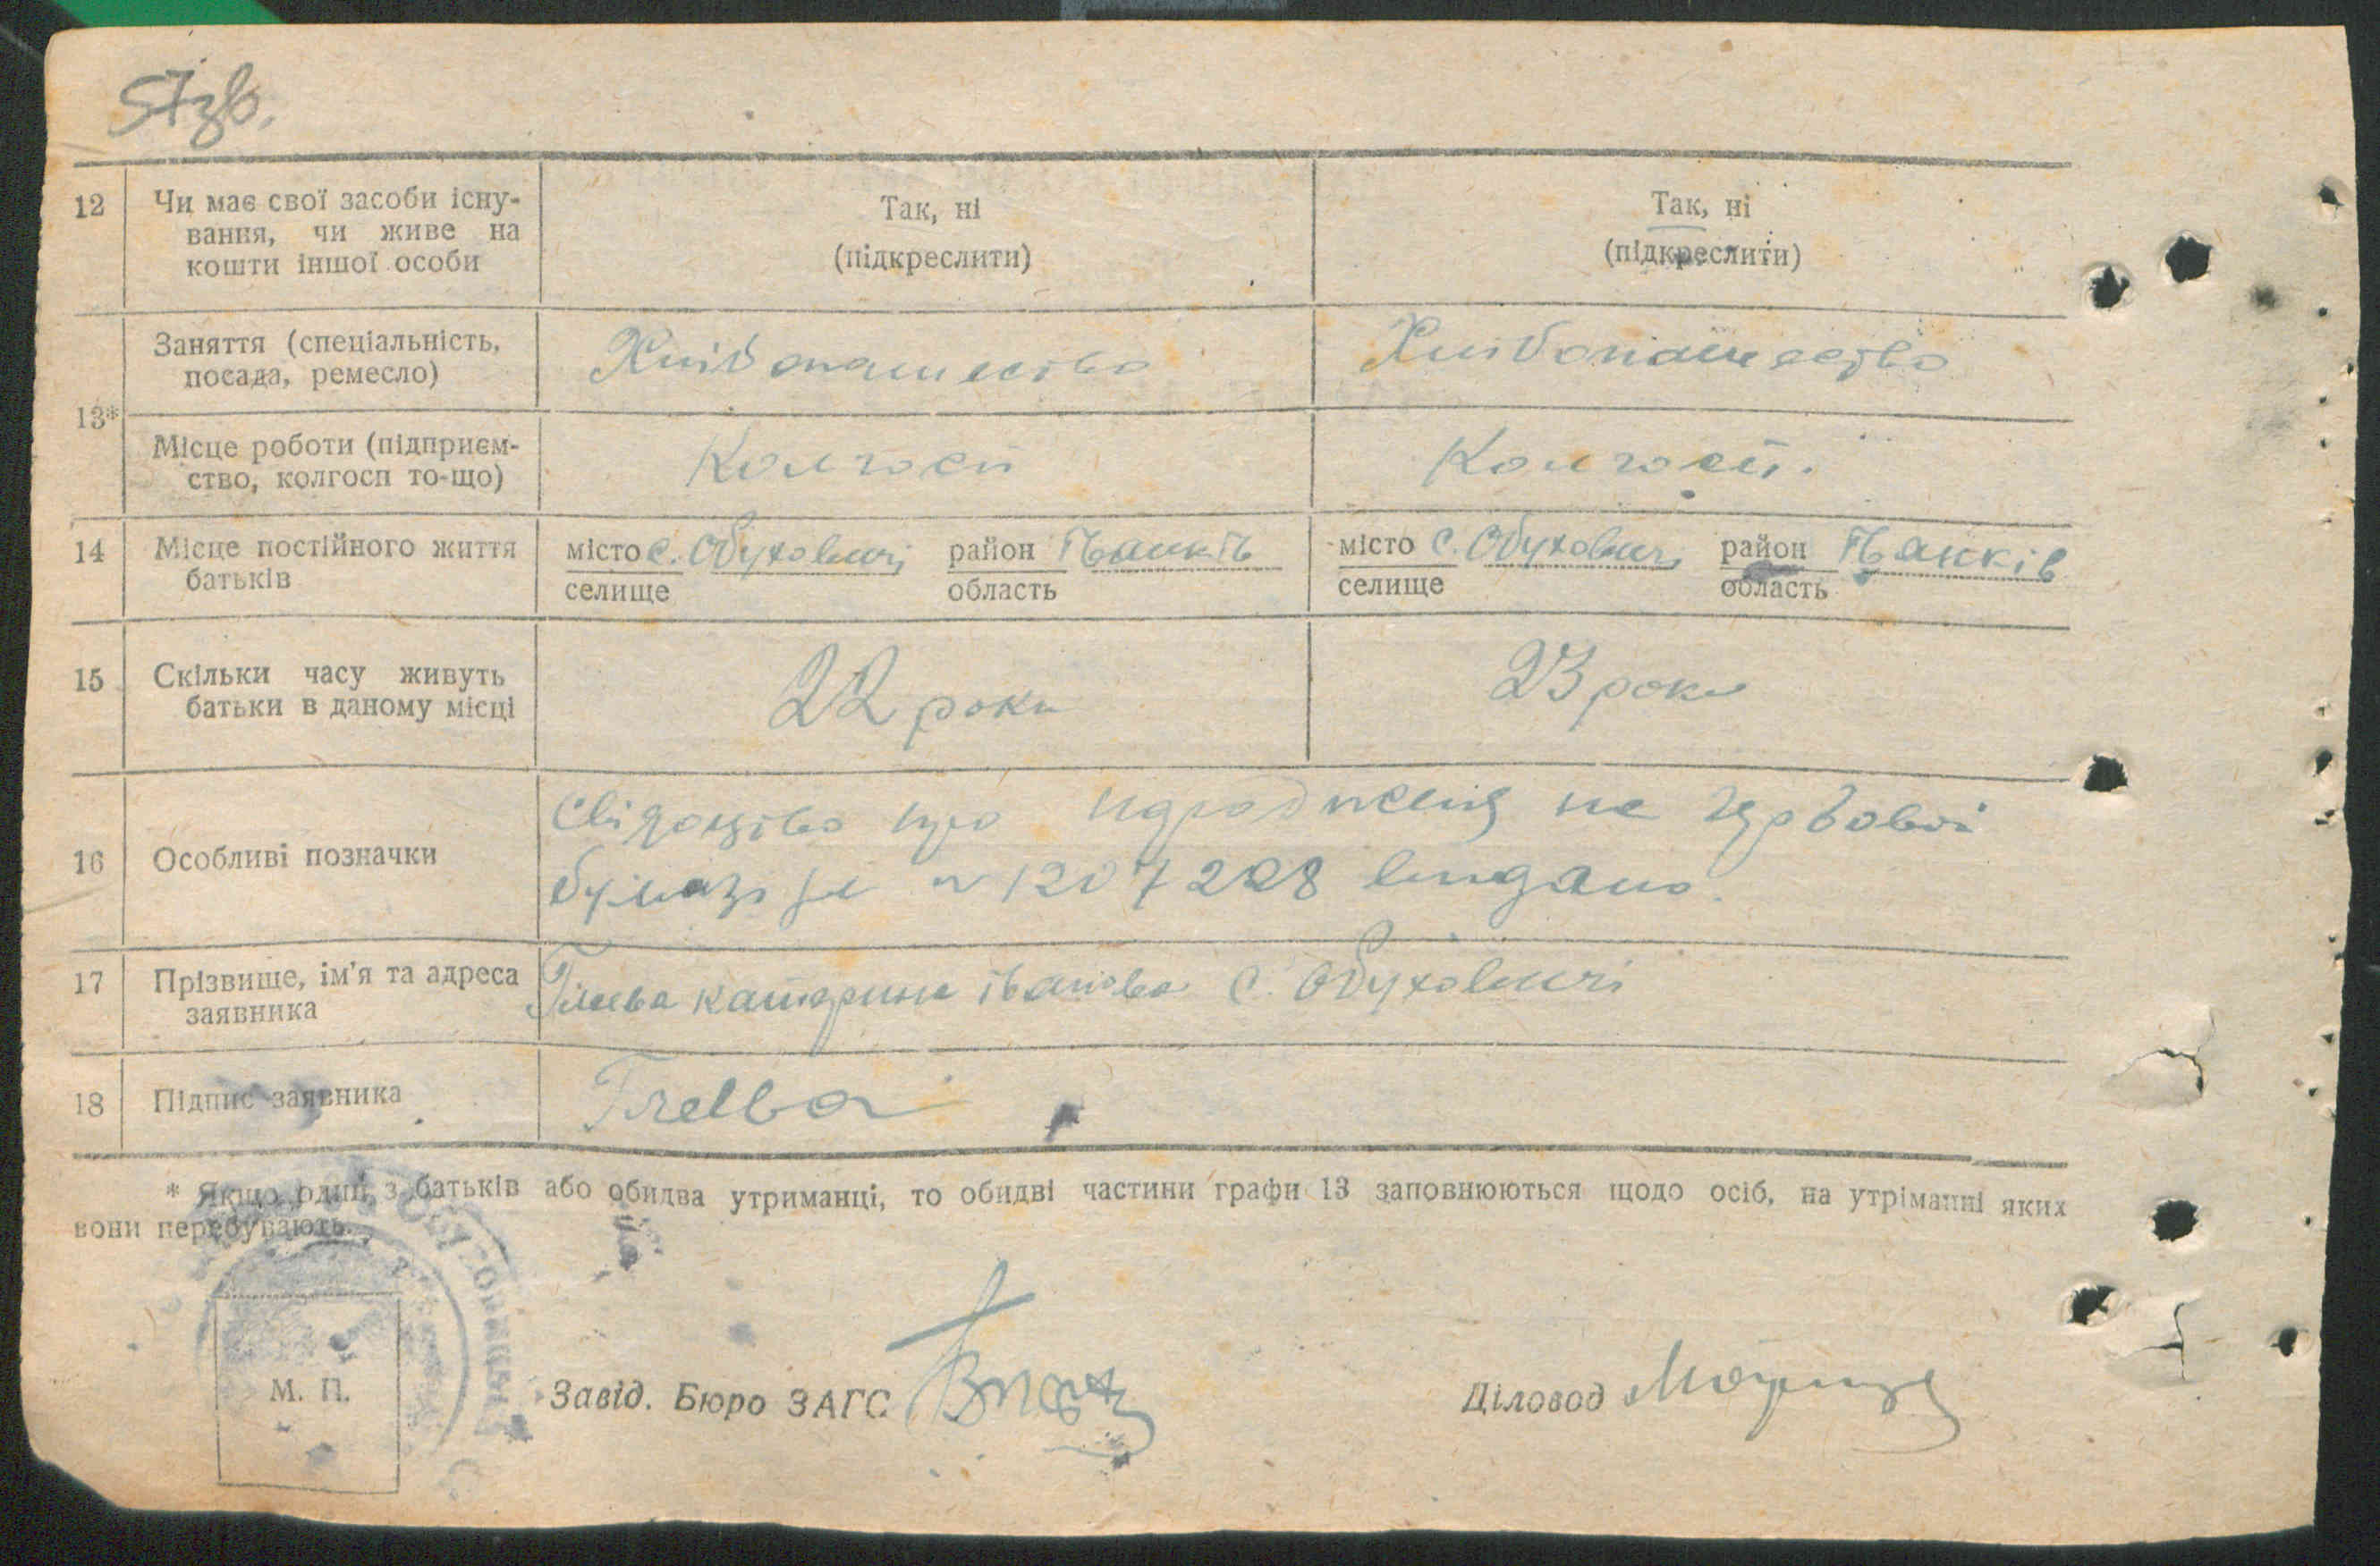 57зв.
12 Чи має свої засоби існу-
вання, чи живе на
кошти іншої особи
Так, ні
(підкреслити)
Так, ні
(підкреслити)
13*
Заняття (спеціальність,
посада, ремесло)
Хлібопашество
Хлібопашество
Місце роботи (підприєм-
ство, колгосп то-що)
Колгосп
Колгосп.
14 Місце постійного життя
батьків
місто с. Обуховичі район Іванків
селище область
місто с. Обуховичі район Іванків
селище область
15 Скільки часу живуть
батьки в даному місці
22 роки
23 роки
16 Особливі позначки
Свідоцтво про народження на гербовій
бумазі № 1207228 видано.
17 Прізвище, ім'я та адреса
заявника
Катерина Іванова с. Обуховичі
18 Підпис заявника
* Якщо один з батьків або обидва утриманці, то обидві частини графи 13 заповнюються щодо осіб, на утріманні яких
вони перебувають.
М. П.
Завід. Бюро ЗАГС
Діловод